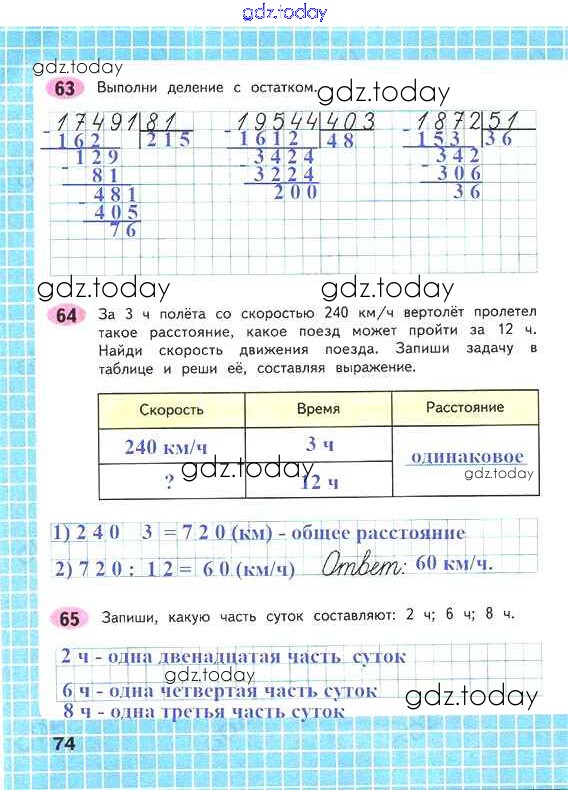 gdz.today
gdz.today
63 Выполни деление с остатком.
gdz.today
17491 81 19544 403 1872 51
- 162 215 - 1612 48 - 153 36
- 129 - 3424 - 342
81 3224 306
- 481 200 36
405
76
gdz.today gdz.today
64 За 3 ч полёта со скоростью 240 км/ч вертолёт пролетел
такое расстояние, какое поезд может пройти за 12 ч.
Найди скорость движения поезда. Запиши задачу в
таблице и реши её, составляя выражение.
Скорость Время Расстояние
240 км/ч 3 ч одинаковое
gdz.today gdz.today
? 12 ч
1) 240 3 = 720 (км) - общее расстояние
2) 720 : 12 = 60 (км/ч) Ответ: 60 км/ч.
65 Запиши, какую часть суток составляют: 2 ч; 6 ч; 8 ч.
2 ч - одна двенадцатая часть суток
gdz.today
6 ч - одна четвертая часть суток
gdz.today
8 ч - одна третья часть суток
74